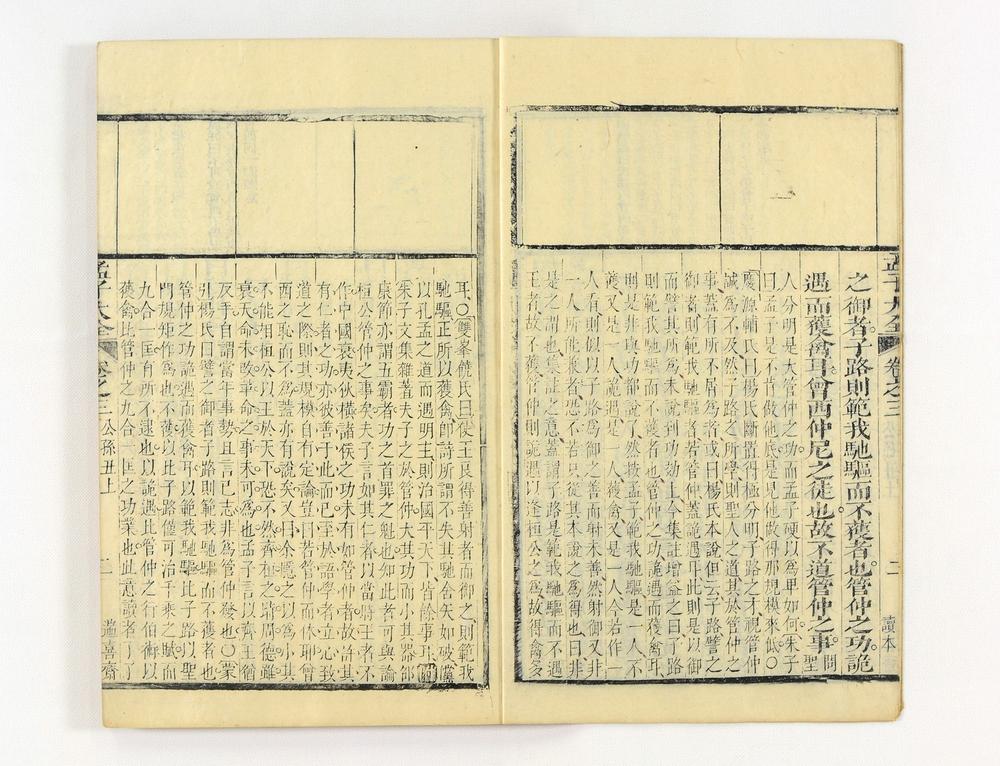 之御者子路則範我馳驅而不獲者也管仲之功詭
遇而獲禽耳曾西仲尼之徒也故不道管仲之事問聖
人分明是大管仲之功而孟子硬以爲卑如何朱子
曰孟子是不肯做他底是見他做得那規模來低○
慶源輔氏曰楊氏斷置得極分明子路之才視管仲
誠爲不及然子路之所學則聖人之道其於管仲之
事蓋有所不屑爲者或曰楊氏本說但云子路譬之
御者則範我馳驅者若管仲蓋詭遇耳此則是以御
而譬其所爲未說到功劾上今集註增益之曰子路
則範我馳驅而不獲者也管仲之功詭遇而獲禽耳
則是非與功都說了然據孟子範我馳驅是一人不
獲又是一人詭遇是一人獲禽又是一人今若作一
人看則似以子路爲御之善而射未善然射御又非
一人所能兼者恐不若只從其本說之爲得也曰非
是之謂也集註之意蓋謂子路是範我馳驅而不遇
王者故不獲管仲則詭遇以逢桓公之爲故得禽多
孟子大全 卷之三 二 讀本
耳○雙峯饒氏曰使王良得善射者而御之則範我
馳驅正所以獲禽卽詩所謂不失其馳舍矢如破儻
以孔孟之道而遇明主則治國平天下皆餘事耳附
朱子文集雜著夫子之於管仲大其功而小其器邵
康節亦謂五霸者功之首罪之魁也知此者可與論
桓公管仲之事矣夫子言如其仁者以當時王者不
作中國衰夷狄橫諸侯之功未有如管仲者故許其
有仁者之功亦彼善于此而已至於語學者立心致
道之際則其規模自有定論豈曰若管仲而休耶曾
西之恥而不爲蓋亦有說矣又曰余隱之以爲小其
不能相桓公以王於天下恐不然齊桓之時周德雖
衰天命未改革命之事未可爲也孟子言以齊王猶
反手自謂當年事勢且言己志非爲管仲發也○蒙
引楊氏曰譬之御者子路則範我馳驅而不獲者也
管仲之功詭遇而獲禽耳範我馳驅比子路以聖
門規矩作爲也不獲以比子路僅可治千乘之賦而
九合一匡有所不逮也以詭遇比管仲之行伯術以
獲禽比管仲之九合一匡之功業也此意讀者了了
孟子大全 卷之三 公孫丑上 二 喜齋